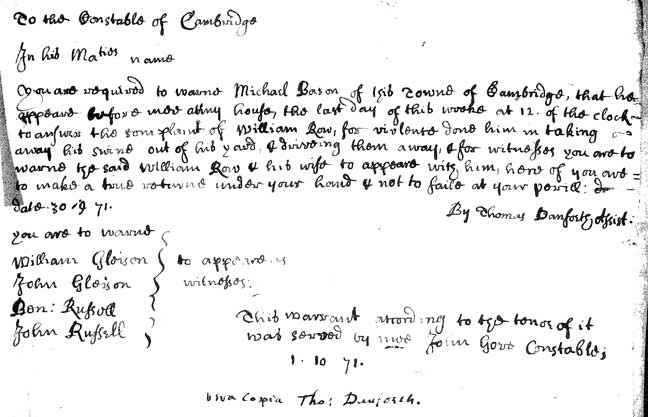 To the Constable of Cambridge
In his Maties name
You are required to warne Michael Bacon of this Towne of Cambridge, that he
appeare before mee at my house, the last day of this weeke at 12. of the clock
to answer the complaint of William Row, for violence done him in taking
away his swine out of his yard, & driveing them away, & for witnesses you are to
warne the said William Row & his wife to appeare with him, here of you are
to make a true returne under your hand & not to faile at your perill:
date. 30 9 71.
By Thomas Danforth, Assist:
you are to warne
William Gleison
John Gleison
Ben: Russell
John Russell
to appeare as
witnesses:
This warrant according to the tenor of it
was served by mee John Gove Constable;
1. 10 71.
vera Copia Tho: Danforth.